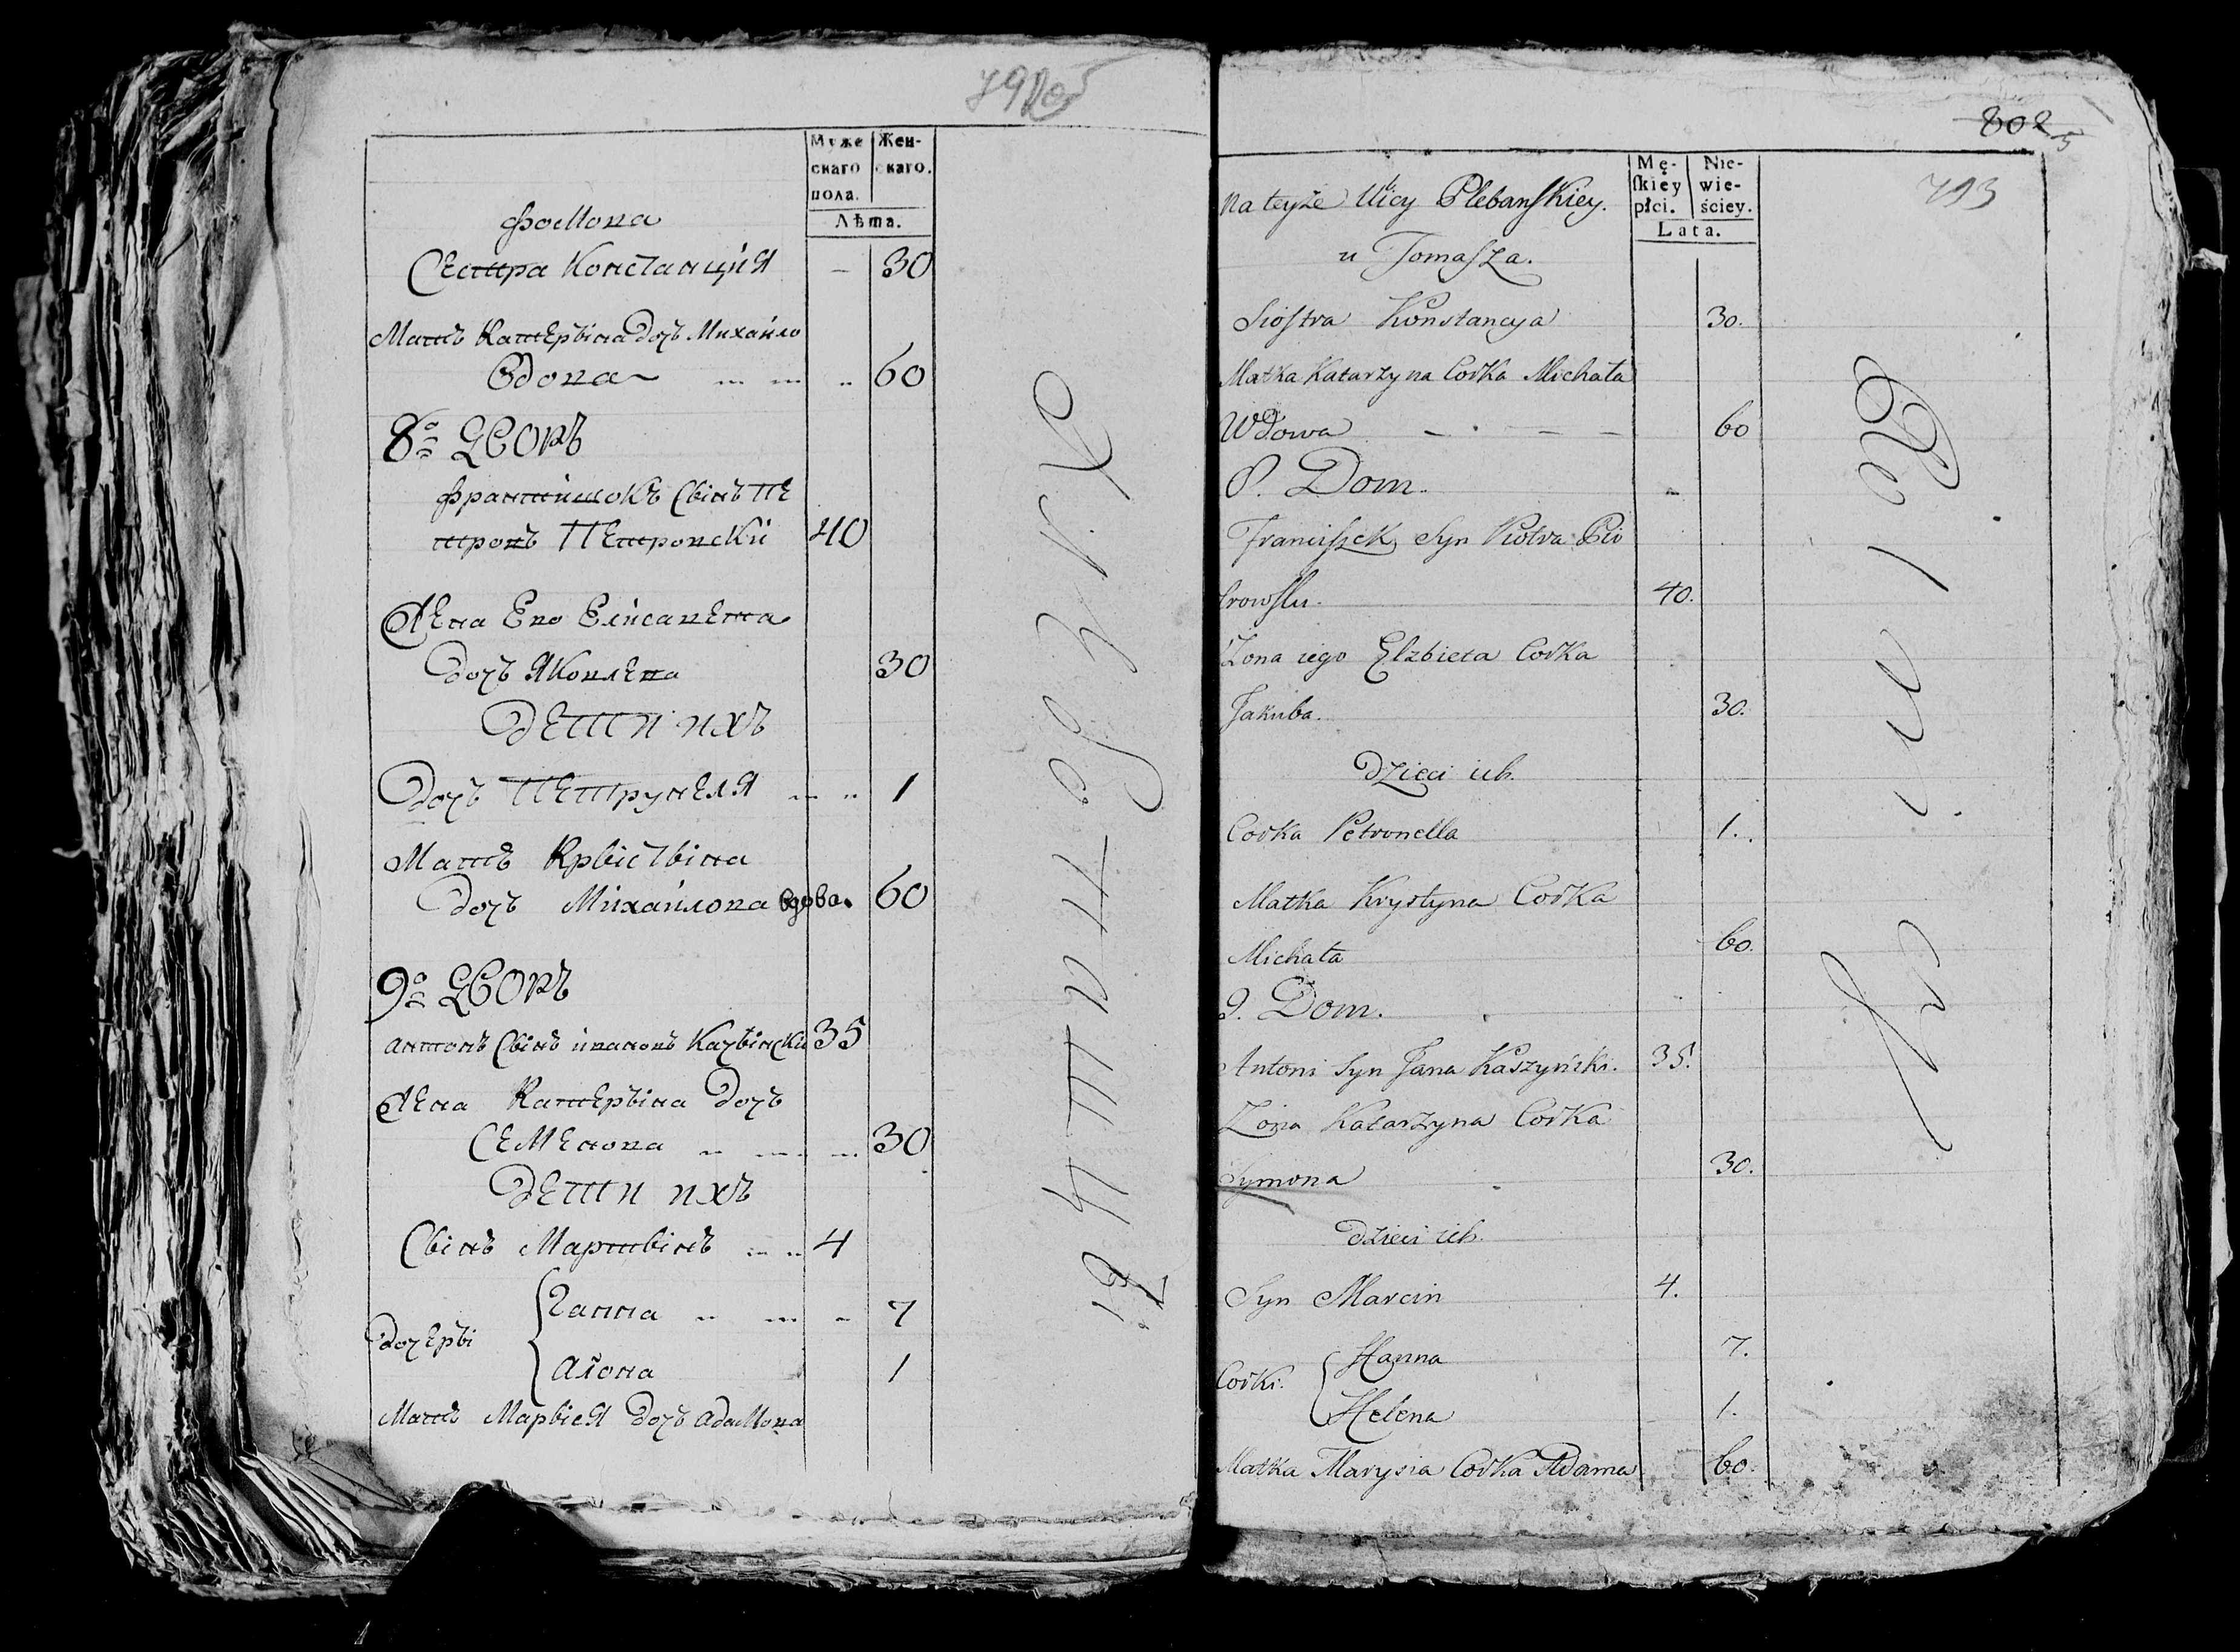 Муже
скаго
пола.
Жен-
скаго.
Лѣта.
фомова
Сестра Констанция - 30
Мать Катерына дочъ Михайло
Вдова 60
8й Дворъ
Франтишокъ Сынъ Пе
тровъ Петровски 40
Жена Его Елисавета
дочъ Яковлева 30
Дети ихъ
Дочъ Петрунеля 1
Мать Крыстына
дочъ Михайлова вдова. 60
9й Дворъ
антонъ Сынъ ивановъ Качынски 35
Жена Катерына дочъ
Семенова 30
Дети ихъ
Сынъ Мартынъ 4
дочеры
Ганна 7
алена 1
Мать Марыся дочъ адамова
802
793
Mę-
ſkiéy
płci.
Nie-
wie-
ściey.
Lata.
Na teyże Ulicy Plebanſkiey.
u Tomaſza.
Sioſtra Konstancya 30.
Matka Katarzyna Corka Michała
Wdowa 60
8. Dom.
Franciſzek Syn Piotra Pio
trowſki. 40.
Żona iego Elzbieta Corka
Jakuba. 30.
Dzieci ich.
Corka Petronella 1.
Matka Krystyna Corka
Michała 60.
9. Dom.
Antoni Syn Jana Kaszyński. 35.
Zona Katarzyna Corka
Symona 30.
Dzieci ich.
Syn Marcin 4.
Corki.
Hanna 7.
Helena 1.
Matka Marysia Corka Adama 60.